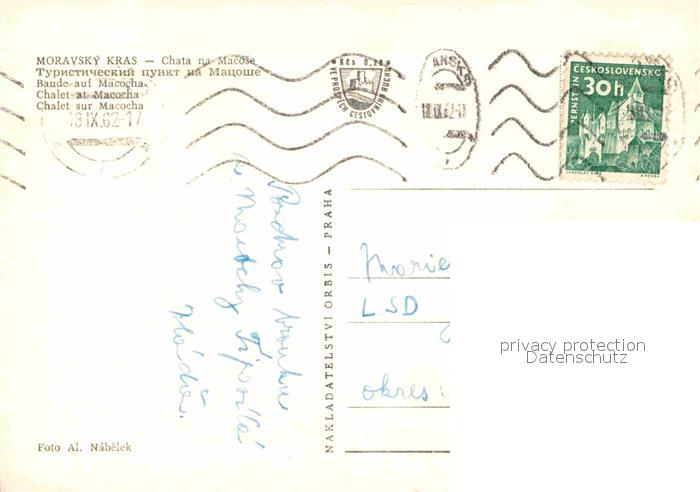 MORAVSKÝ KRAS — Chata na Macoše
Туристический пункт на Мацоше
Baude auf Macocha
Chalet at Macocha
Chalet sur Macocha
18 IX.62-17
Kčs 0,20
VE PROSPĚCH CESTOVNÍHO RUCHU
ANSKO
18.IX.62-17
ČESKOSLOVENSKO
30h
PERNŠTEJN
Pozdrav
z Macochy
NAKLADATELSTVÍ ORBIS — PRAHA
Marie
LSD
okres:
privacy protection
Datenschutz
Foto Al. Nábělek